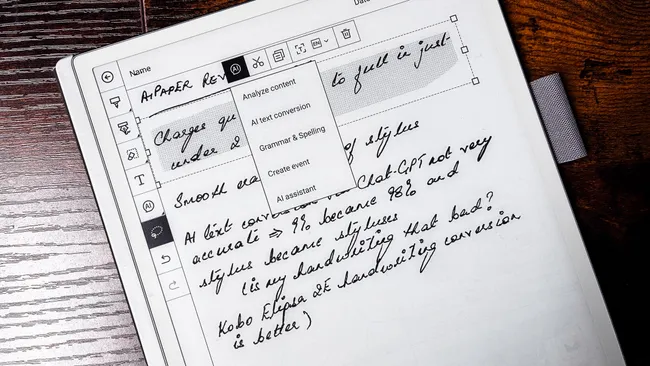 Date
Name
AI
EN
AIPAPER REV
Analyze content
AI text conversion
Grammar & Spelling
Create event
AI assistant
T
AI
Charges qu to full in just
under 2
Smooth of stylus
AI text Chat-GPT not very
accurate ⇒ 9% became 98% and
stylus became styluses
(is my handwriting that bad?
Kobo Elipsa 2E handwriting conversion
is better)